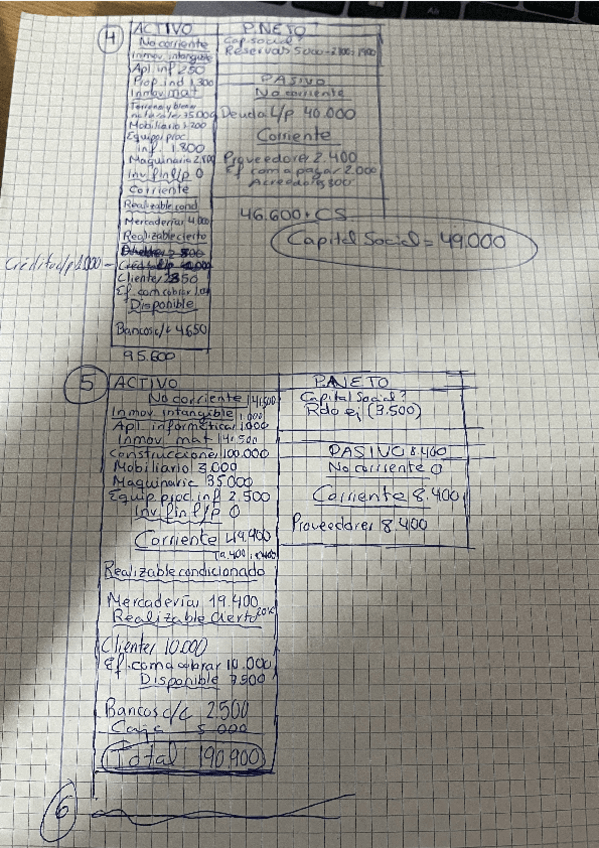 4
ACTIVO
No corriente
Inmov. intangible
Apl inf 250
Prop. ind 1.300
Inmov. mat
Mobiliario 1.200
Equipi proc
inf 1.800
Maquinaria
Inv fin l/p 0
Corriente
Realizable cond
Mercaderías 4.000
Realizable cierto
Clientes
Ef. com a cobrar
Disponible
Bancos c/c 4650
95.600
P.NETO
Cap. social?
Reservas
PASIVO
No corriente
Deuda L/p 40.000
Corriente
Proveedores 2.400
Ef com a pagar 2.000
Acreedores
46.600 + CS
Capital Social = 49.000
5
ACTIVO
No corriente 141.500
Inmov. intangible 1.000
Apl. informática 1000
Inmov. mat
Construcciones 100.000
Mobiliario 3.000
Maquinaria 35.000
Equip proc inf 2.500
Inv fin l/p 0
Corriente 49.400
Realizable condicionado
Mercaderías 19.400
Realizable cierto
Clientes 10.000
Ef. com a cobrar 10.000
Disponible 7.500
Bancos c/c 2.500
Caja 5.000
Total 190.900
P.NETO
Capital Social?
Rdo ej (3.500)
PASIVO 8.400
No corriente 0
Corriente 8.400
Proveedores 8.400
6